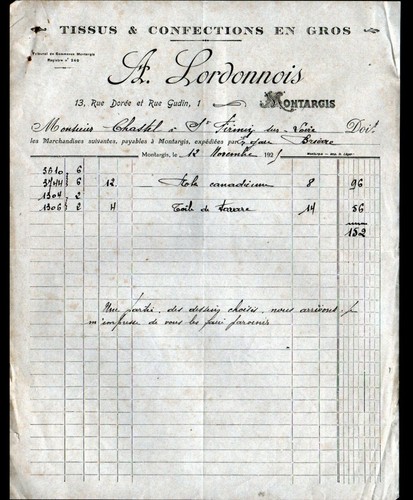 TISSUS & CONFECTIONS EN GROS
Tribunal de Commerce Montargis
Registre n° 546
A. Lordonnois
13, Rue Dorée et Rue Gudin, 1 MONTARGIS
Monsieur Chastel à St Firmin sur Loire Doit
les Marchandises suivantes, payables à Montargis, expédiées par gare Briare
Montargis, le 12 Novembre 192
3610 6
3744 6 12 canadienne 8 96
1304 2
1306 2 4 Toile de 14 56
152
Une partie des dessins choisis, nous arrivent, je
m'empresse de vous les faire parvenir